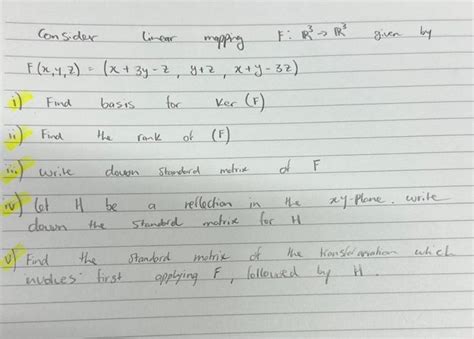 Consider linear mapping F: ℝ³ → ℝ³ given by
F(x,y,z) = (x + 3y - z, y+z, x+y-3z)
i) Find basis for Ker (F)
ii) Find the rank of (F)
iii) write down standard matrix of F
iv) Let H be a reflection in the xy-plane. write
down the standard matrix for H
v) Find the standard matrix of the transformation which
involves first applying F, followed by H.